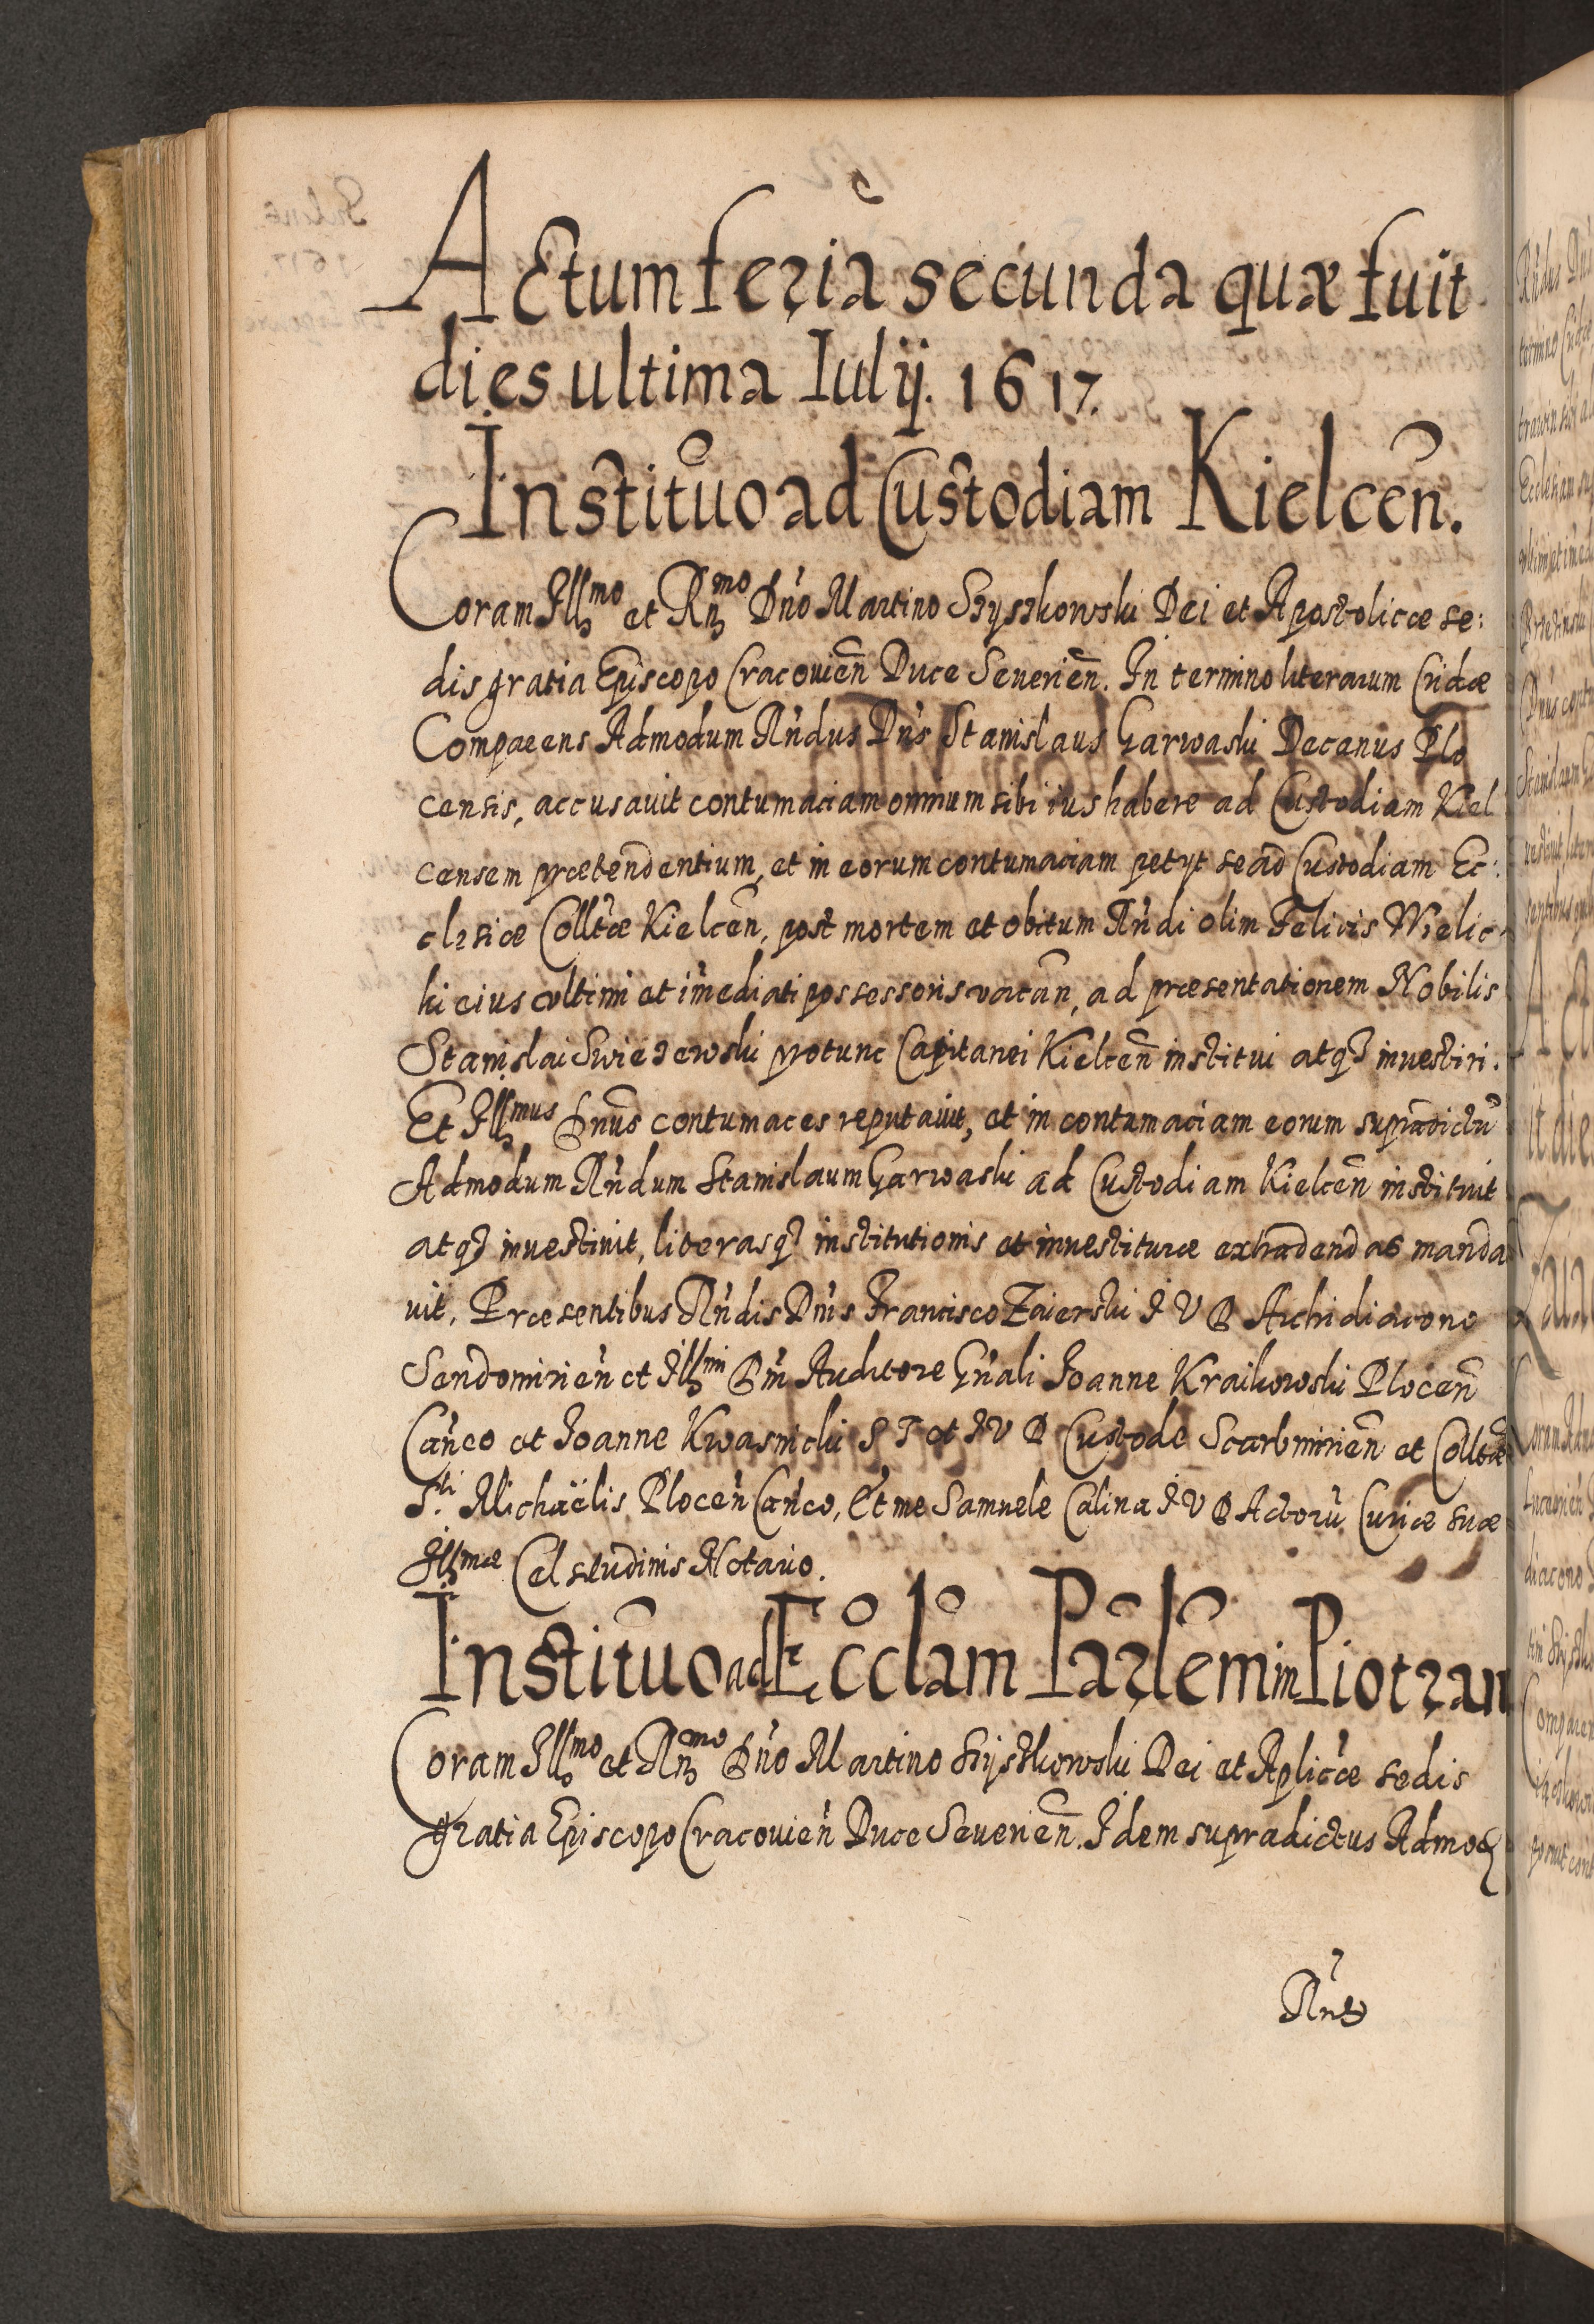 Actum feria secunda quæ fuit
dies ultima Iulij. 1617.
Institũo ad Custodiam Kielceñ.
Coram Illmo et Rmo Dño Martino Szyszkowski Dei et Apostolicæ se:
dis gratia Episcopo Cracovieñ Duce Severieñ. In termino literarum Cridæ
Compaeens Admodum Rñdus Dñs Stanislaus Garwaski Decanus Plo
censis, accusavit contumaciam omnium sibi ius habere ad Custodiam Kiel
censem prætendentium, et in eorum contumaciam petyt se ad Custodiam Ec:
clesiæ Colltæ Kielceñ, post mortem et obitum Rñdi olim Felicis Wielic
ki eius ultimi et im̃ediati possessoris vacañ, ad præsentationem Nobilis
Stanislai Swiezewski protunc Capitanei Kielceñ institui atq3 investiri.
Et Illmus Dnus contumaces reputavit, et in contumaciam eorum supradictũ
Admodum Rñdum Stanislaum Garwaski ad Custodiam Kielceñ instituit
atq3 investivit, literasq3 institutionis et investituræ extradendas manda
vit. Præsentibus Rñdis Dñis Francisco Zaierski I V D Archidiacono
Sendomirieñ et Illmi Dñi Auditore Gñali Joanne Kraikowski Ploceñ
Cañco et Joanne Kwasnicki S T et I V D Custode Scarbmirieñ et Colltæ
Sti Michaëlis Ploceñ Cañco, Et me Samuele Calina I V D Actorũ Curiæ suæ
Illmæ Celsitudinis Notario.
Institũo ad Ecclãm Parlẽm in Piotraw
Coram Illmo et Rmo Dño Martino Szyszkowski Dei et Aplicæ sedis
gratia Episcopo Cracovieñ Duce Severieñ. Idem supradictus Admod
Rñd